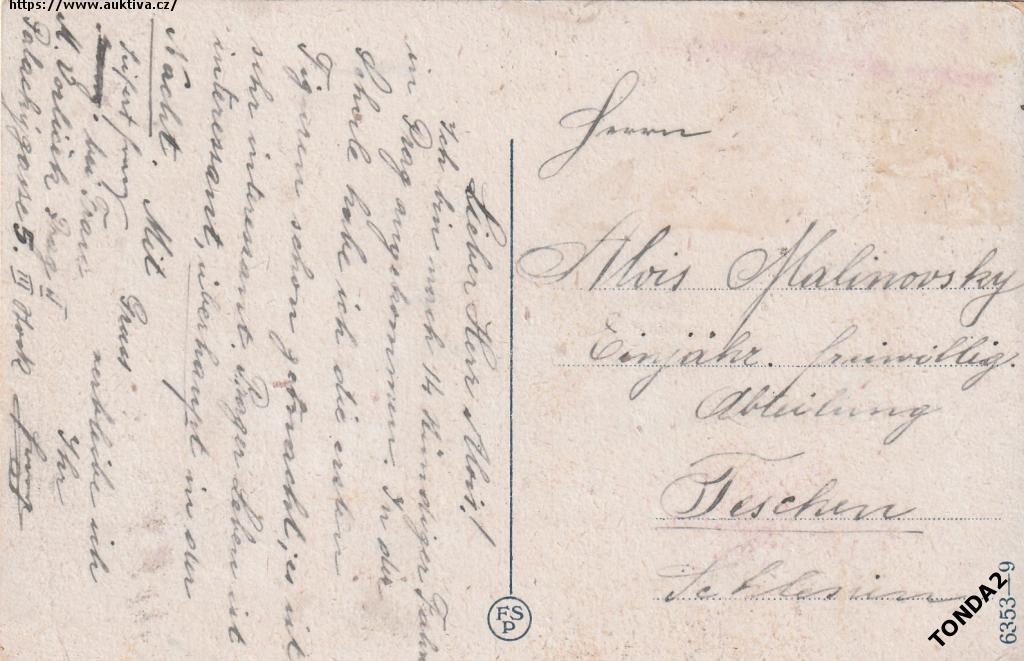 https://www.auktiva.cz/
Lieber Herr Alois!
Ich bin nach 14 stündiger Fahrt
in Prag angekommen. In der
Schule habe ich die ersten
Figuren schon gemacht, es ist
sehr interessant. Prager Leben ist
interessant, überhaupt in der
Nacht. Mit Gruss
verbleibe ich
Ihr
bei Frau
Prag II
Palackýgasse 5. III Stock
Herrn
Alois Malinovsky
Einjähr. freiwillig.
Abteilung
Teschen
Schlesien
FS
P
6353—9
TONDA2